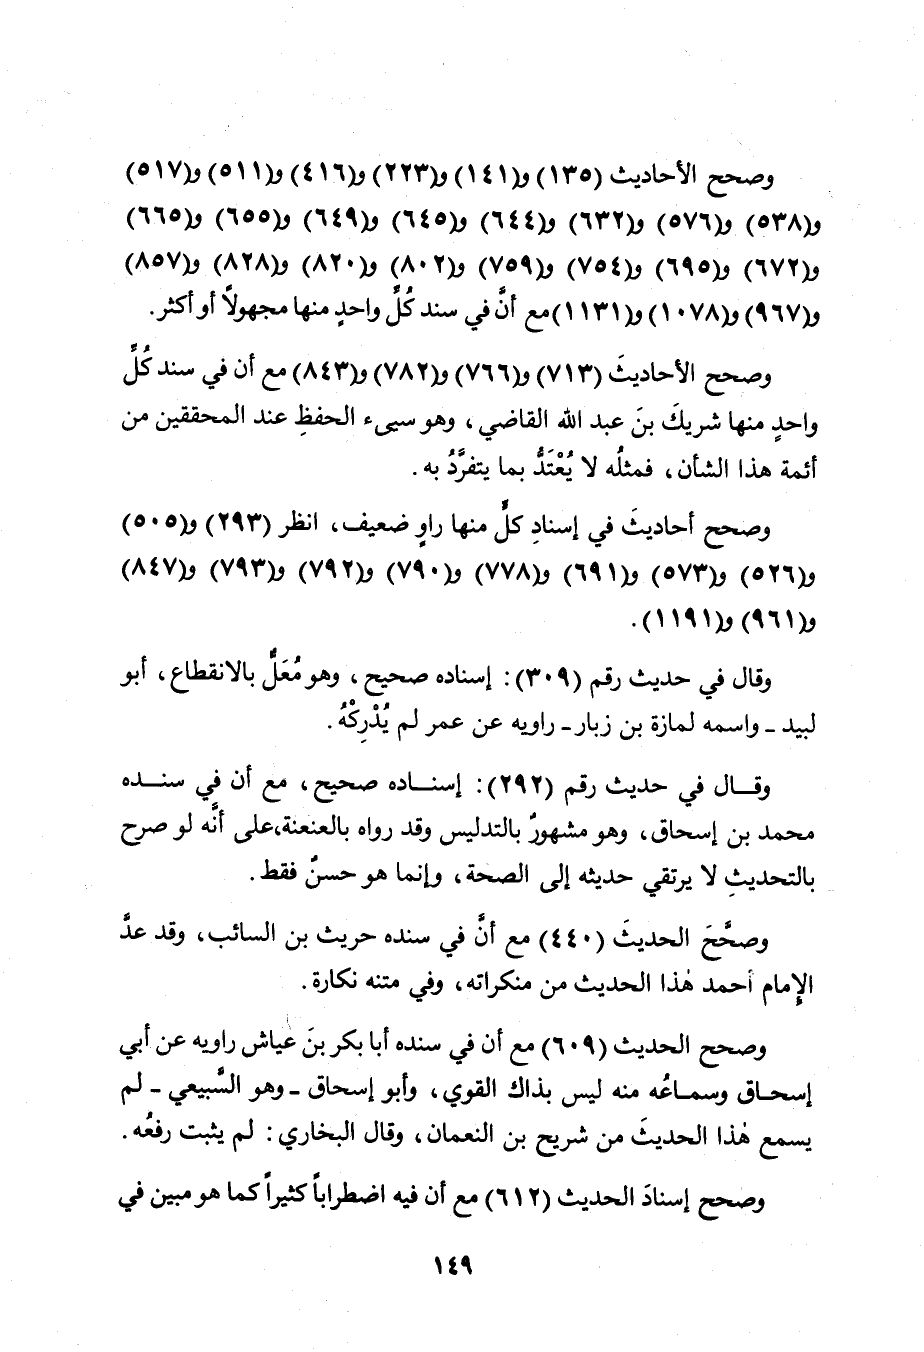 وصحح الأحاديث (١٣٥) و(١٤١) و(٢٢٣) و(٤١٦) و(٥١١) و(٥١٧)
و(٥٣٨) و(٥٧٦) و(٦٣٢) و(٦٤٤) و(٦٤٥) و(٦٤٩) و(٦٥٥) و(٦٦٥)
و(٦٧٢) و(٦٩٥) و(٧٥٤) و(٧٥٩) و(٨٠٢) و(٨٢٠) و(٨٢٨) و(٨٥٧)
و(٩٦٧) و(١٠٧٨) و(١١٣١) مع أنَّ في سند كُلِّ واحدٍ منها مجهولاً أو أكثر.
وصحح الأحاديثَ (٧١٣) و(٧٦٦) و(٧٨٢) و(٨٤٣) مع أن في سند كُلِّ
واحدٍ منها شريكَ بنَ عبد الله القاضي، وهو سيىء الحفظِ عند المحققين من
أئمة هذا الشأن، فمثلُه لا يُعْتَدُّ بما يتفرَّدُ به.
وصحح أحاديثَ في إسنادِ كلِّ منها راوٍ ضعيف، انظر (٢٩٣) و(٥٠٥)
و(٥٢٦) و(٥٧٣) و(٦٩١) و(٧٧٨) و(٧٩٠) و(٧٩٢) و(٧٩٣) و(٨٤٧)
و(٩٦١) و(١١٩١).
وقال في حديث رقم (٣٠٩): إسناده صحيح، وهو مُعَلٌّ بالانقطاع، أبو
لبيد ـ واسمه لمازة بن زبار ـ راويه عن عمر لم يُدْرِكْهُ.
وقـال في حديث رقم (٢٩٢): إسنـاده صحيح، مع أن في سنـده
محمد بن إسحاق، وهو مشهورٌ بالتدليس وقد رواه بالعنعنة،على أنَّه لو صرح
بالتحديثِ لا يرتقي حديثه إلى الصحة، وإنما هو حسنٌ فقط.
وصحَّحَ الحديثَ (٤٤٠) مع أنَّ في سنده حريث بن السائب، وقد عدَّ
الإمام أحمد هٰذا الحديث من منكراته، وفي متنه نكارة.
وصحح الحديث (٦٠٩) مع أن في سنده أبا بكر بنَ عياش راويه عن أبي
إسحـاق وسمـاعُه منه ليس بذاك القوي، وأبو إسحاق ـ وهو السَّبيعي ـ لم
يسمع هٰذا الحديثَ من شريح بن النعمان، وقال البخاري: لم يثبت رفعُه.
وصحح إسنادَ الحديث (٦١٢) مع أن فيه اضطراباً كثيراً كما هو مبين في
١٤٩